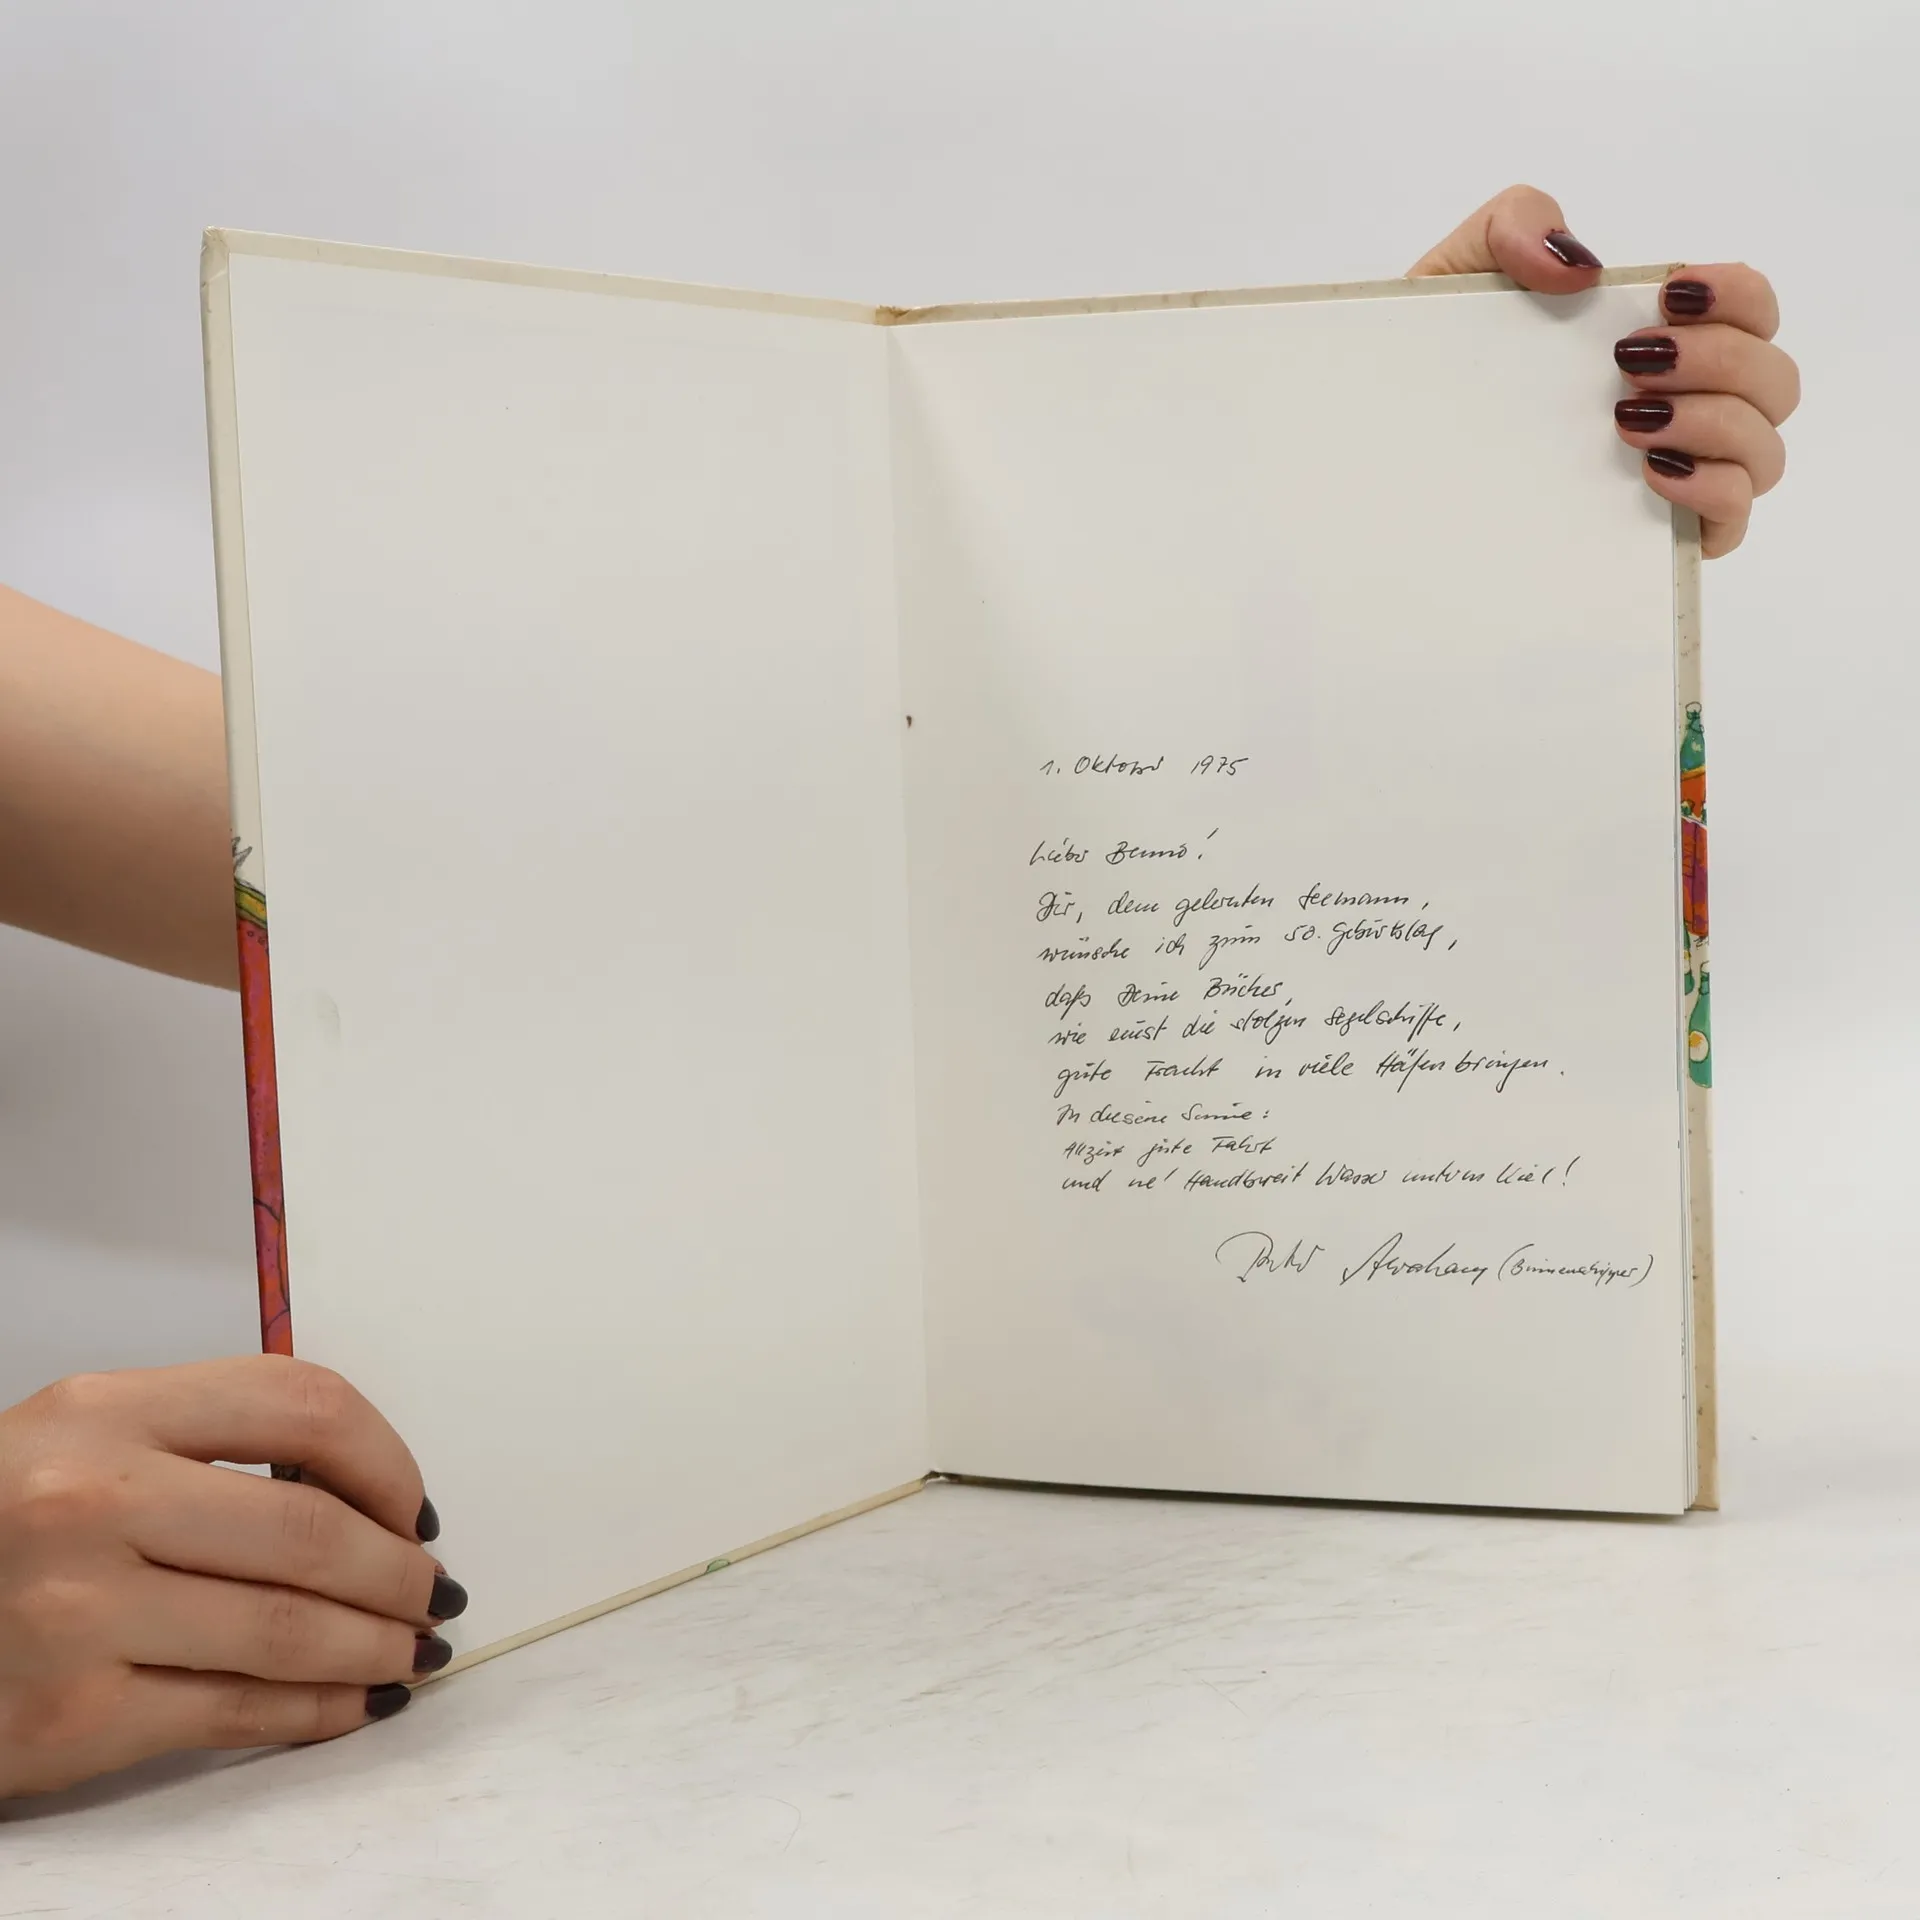 1. Oktober 1975
Lieber Benno!
Dir, dem gelernten Seemann,
wünsche ich zum 50. Geburtstag,
daß Deine Bücher,
wie einst die stolzen Segelschiffe,
gute Fracht in viele Häfen bringen.
In diesem Sinne:
Allzeit gute Fahrt
und ne' Handbreit Wasser unterm Kiel!
(Binnenschipper)